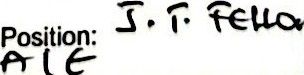 Position: I.T. FELLO
A I E